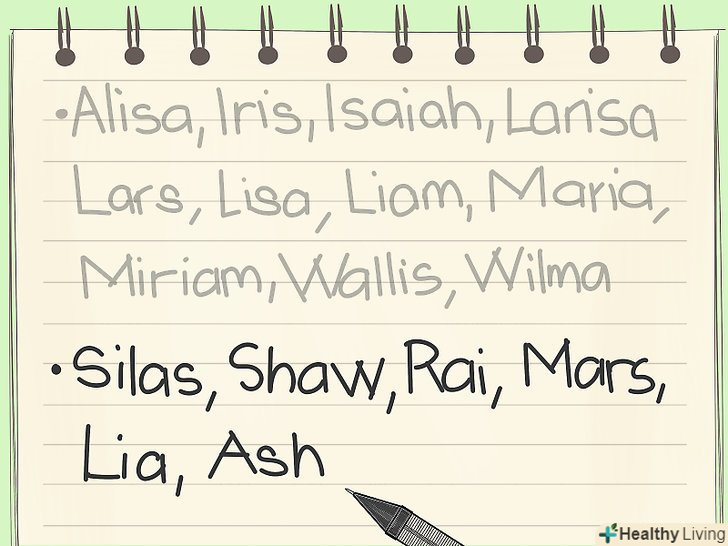 •Alisa, Iris, Isaiah, Larisa
Lars, Lisa, Liam, Maria,
Miriam, Wallis, Wilma
•Silas, Shaw, Rai, Mars,
Lia, Ash
Healthy Living